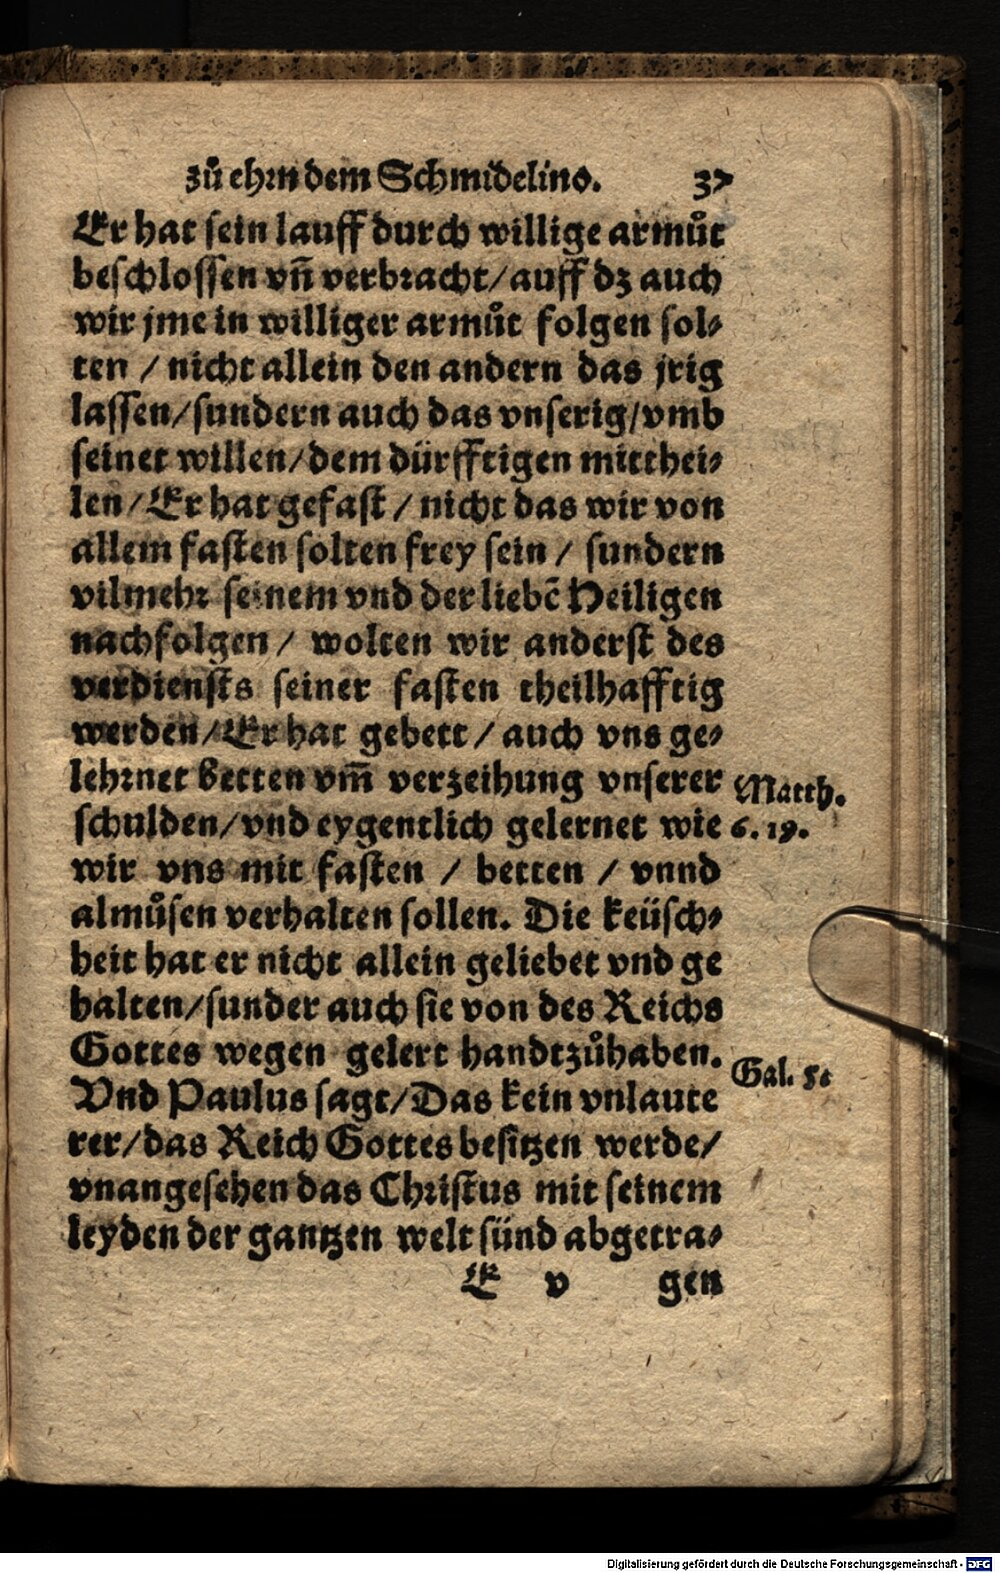 zů ehrn dem Schmidelino. 37
Er hat sein lauff durch willige armůt
beschlossen vñ verbracht/auff dz auch
wir jme in williger armůt folgen sol⸗
ten / nicht allein den andern das jrig
lassen/sundern auch das vnserig/vmb
seinet willen/dem dürfftigen mitthei⸗
len/Er hat gefast / nicht das wir von
allem fasten solten frey sein / sundern
vilmehr seinem vnd der liebē Heiligen
nachfolgen / wolten wir anderst des
verdiensts seiner fasten theilhafftig
werden/Er hat gebett / auch vns ge⸗
lehrnet betten vm̄ verzeihung vnserer
Matth.
schulden/vnd eygentlich gelernet wie
6. 19.
wir vns mit fasten / betten / vnnd
almůsen verhalten sollen. Die keüsch⸗
heit hat er nicht allein geliebet vnd ge
halten/sunder auch sie von des Reichs
Gottes wegen gelert handtzůhaben.
Gal. 5.
Vnd Paulus sagt/Das kein vnlaute
rer/das Reich Gottes besitzen werde/
vnangesehen das Christus mit seinem
leyden der gantzen welt sünd abgetra⸗
E v gen
Digitalisierung gefördert durch die Deutsche Forschungsgemeinschaft - DFG